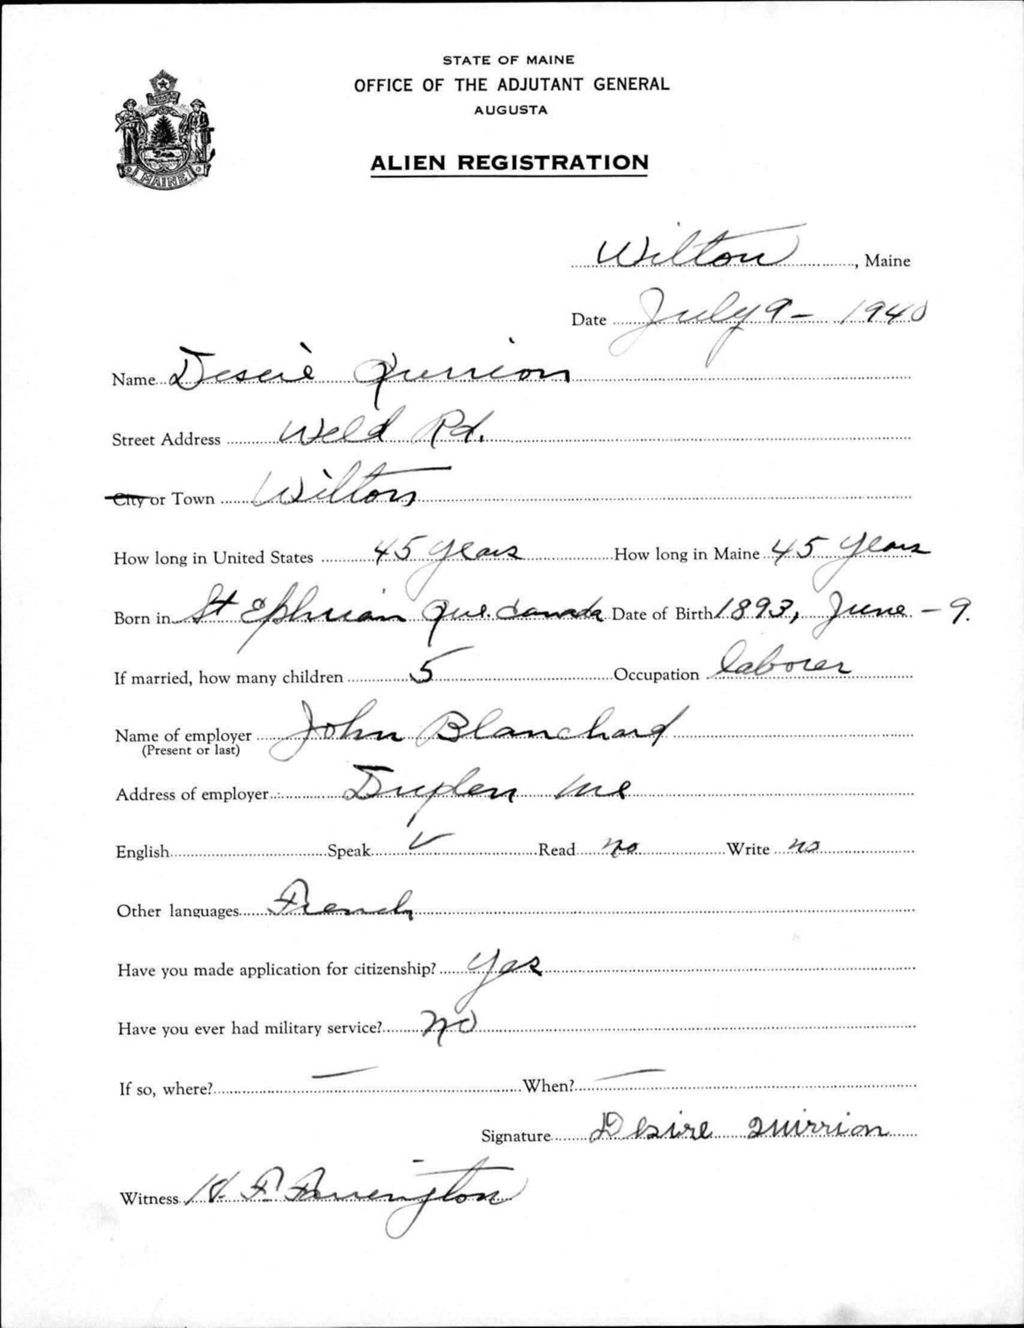 STATE OF MAINE
OFFICE OF THE ADJUTANT GENERAL
AUGUSTA
ALIEN REGISTRATION
MAINE
Wilton, Maine
Date July 9 - 1940
Name Deserè Quirion
Street Address Weld Rd.
City or Town Wilton
How long in United States 45 years How long in Maine 45 years
Born in St Ephriam Que. Canada Date of Birth 1893, June - 9.
If married, how many children 5 Occupation laborer
Name of employer John Blanchard
(Present or last)
Address of employer Me
English Speak ✓ Read no Write no
Other languages French
Have you made application for citizenship? Yes
Have you ever had military service? No
If so, where? — When? —
Signature Desire Quirrion
Witness H. F. Farrington